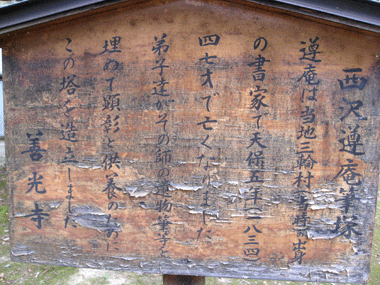 西沢遵庵筆塚
遵庵は当地三輪村 出身
の書家で天保五年(一八三四)
四七才で亡くなりました
弟子達がその師の遺物筆を
埋めて顕彰と供養のために
この塔を造立しました
善光寺